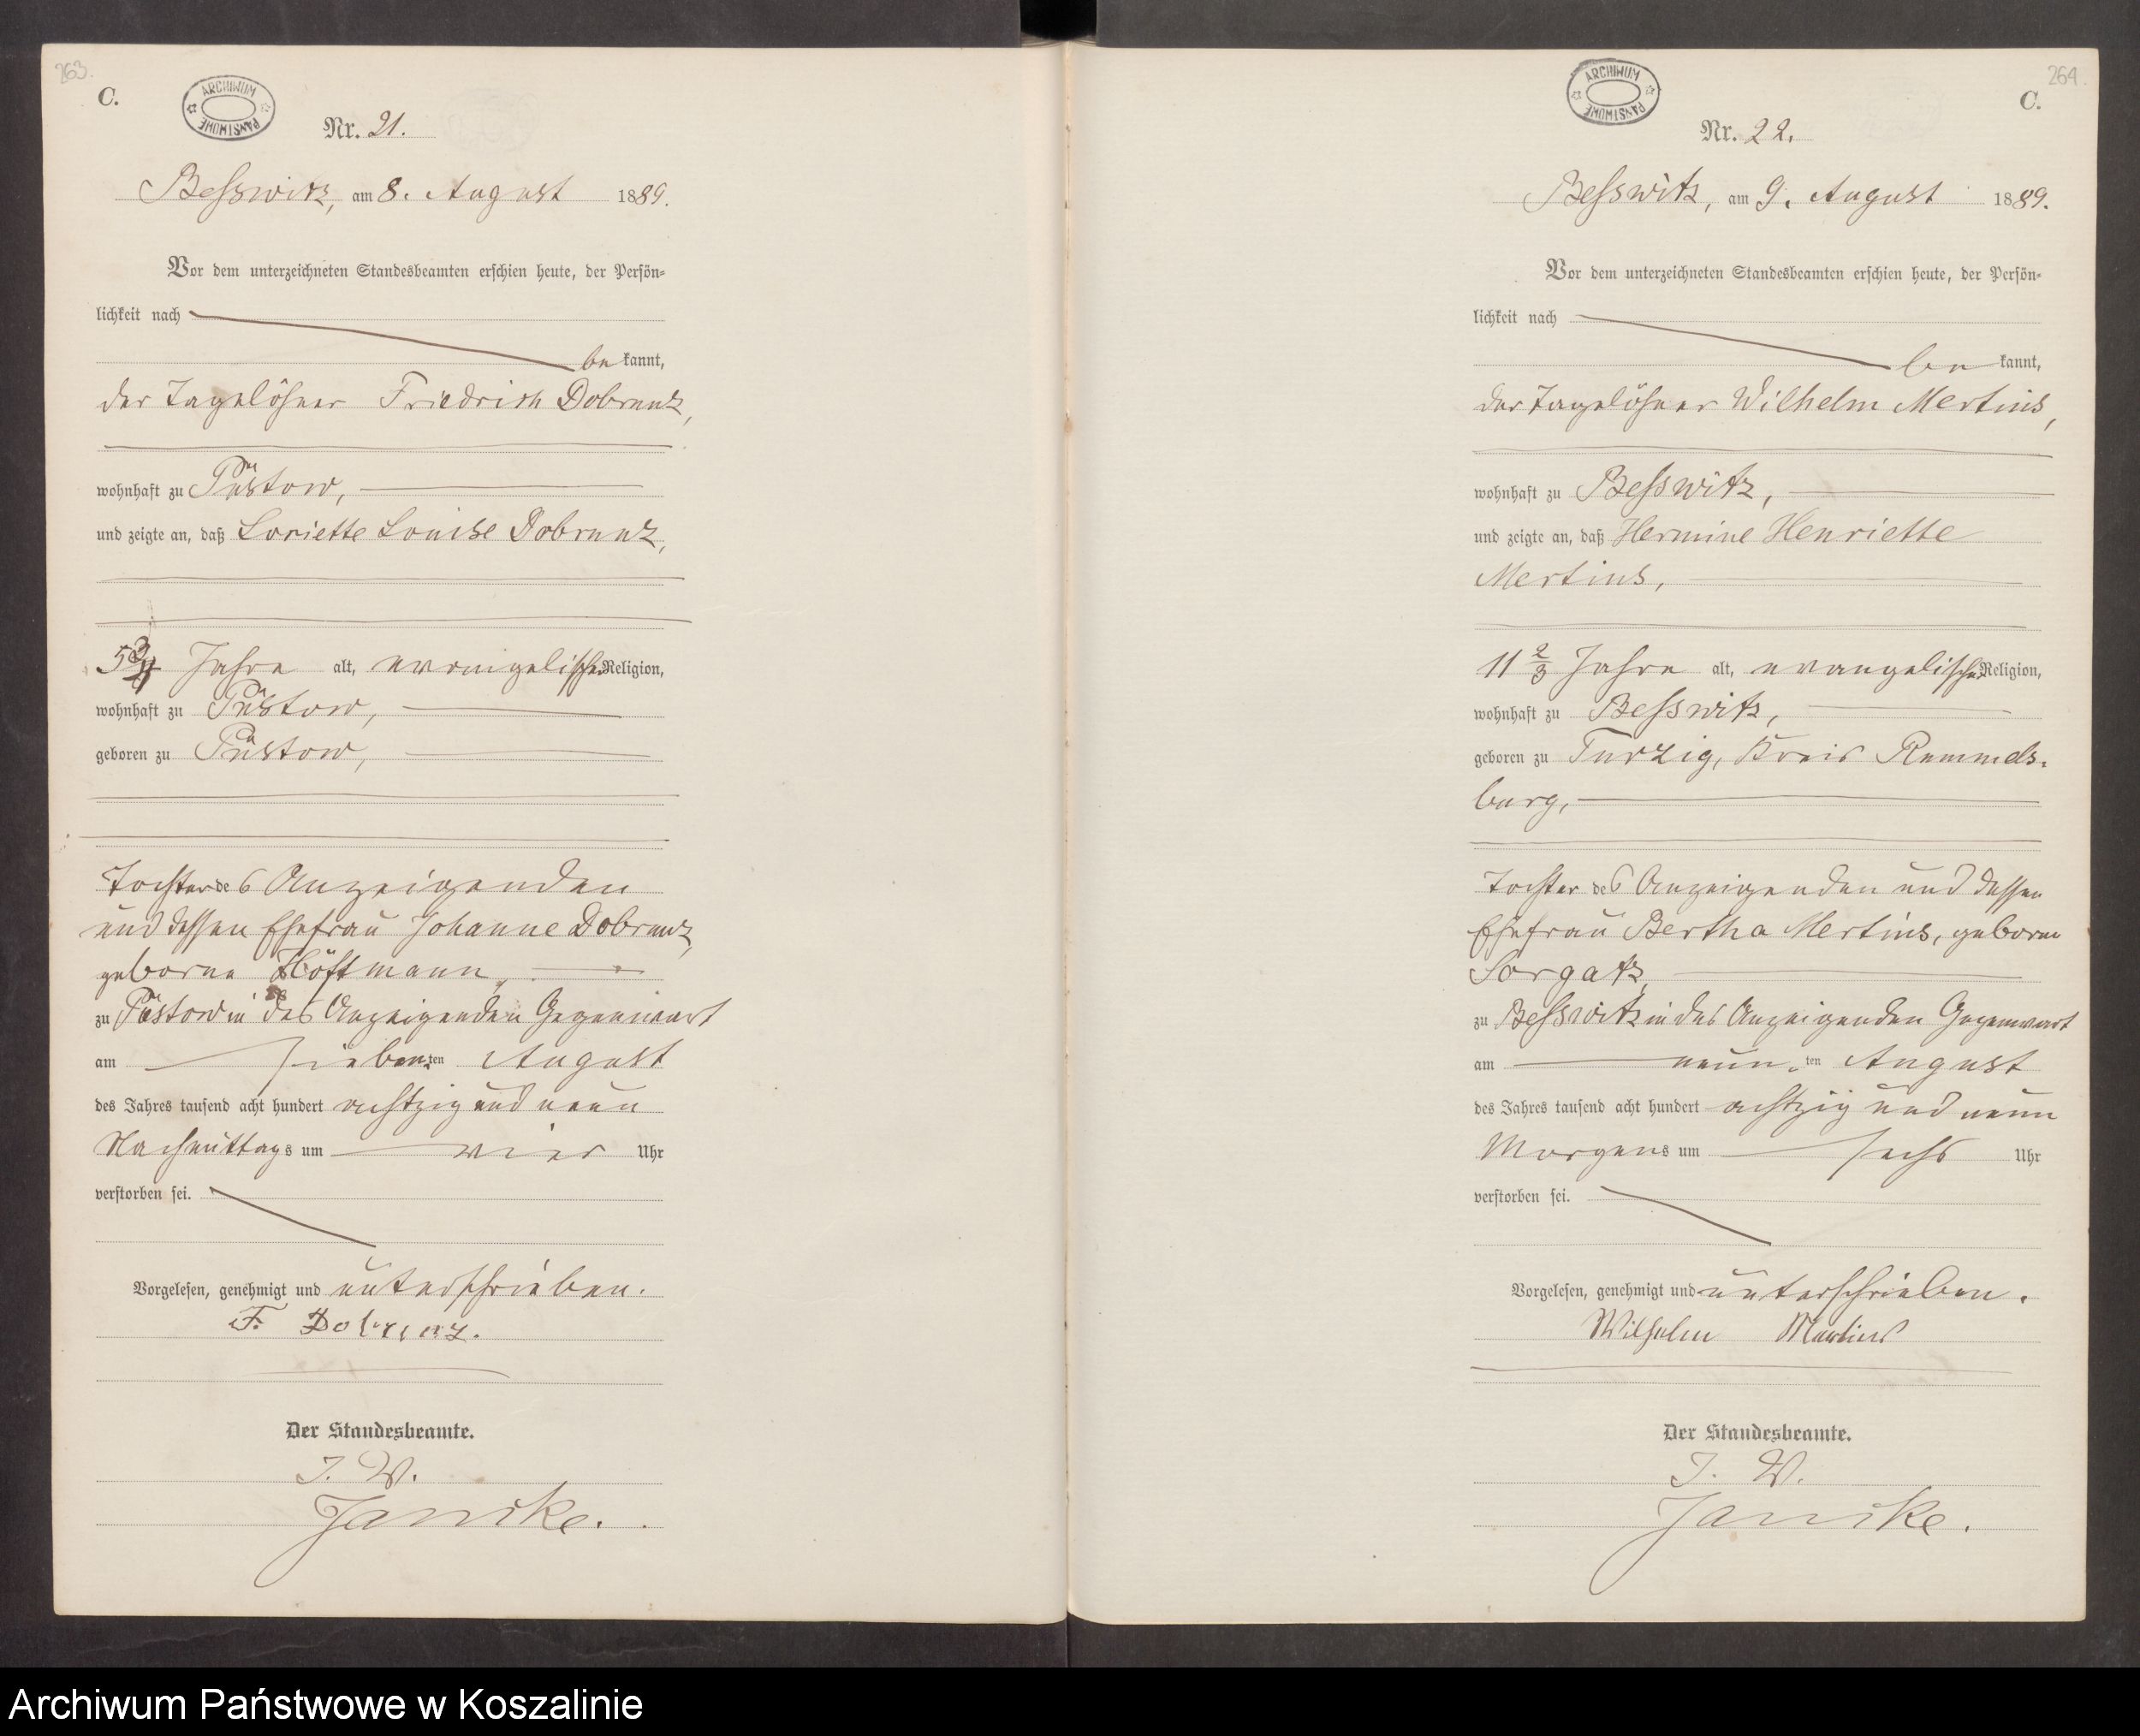 263.
C.
ARCHIWUM PAŃSTWOWE
Nr. 21.
Beſswitz, am 8. August 1889.
Vor dem unterzeichneten Standesbeamten erſchien heute, der Perſön-
lichkeit nach
be kannt,
der Tagelöhner Friedrich Dobrenz,
wohnhaft zu Püstow,
und zeigte an, daß Loriette Louise Dobrenz,
5 3/4 Jahre alt, evangelischer Religion,
wohnhaft zu Püstow,
geboren zu Püstow,
Tochter des Anzeigenden
und dessen Ehefrau Johanne Dobrenz,
geborne Höftmann,
zu Püstow in des Anzeigenden Gegenwart
am sieben ten August
des Jahres tauſend acht hundert achtzig und neun
Nachmittags um vier Uhr
verſtorben ſei.
Vorgeleſen, genehmigt und unterschrieben.
F. Dobrenz.
Der Standesbeamte.
J. V.
Janike.
264.
C.
ARCHIWUM PAŃSTWOWE
Nr. 22.
Beſswitz, am 9. August 1889.
Vor dem unterzeichneten Standesbeamten erſchien heute, der Perſön-
lichkeit nach
be kannt,
der Tagelöhner Wilhelm Mertins,
wohnhaft zu Beſswitz,
und zeigte an, daß Hermine Henriette
Mertins,
11 2/3 Jahre alt, evangelischer Religion,
wohnhaft zu Beſswitz,
geboren zu Turzig, Kreis Rummels-
burg,
Tochter des Anzeigenden und dessen
Ehefrau Bertha Mertins, geborne
Sorgatz,
zu Beſswitz in des Anzeigenden Gegenwart
am neun ten August
des Jahres tauſend acht hundert achtzig und neun
Morgens um sechs Uhr
verſtorben ſei.
Vorgeleſen, genehmigt und unterschrieben.
Wilhelm Mertins
Der Standesbeamte.
J. V.
Janike.
Archiwum Państwowe w Koszalinie